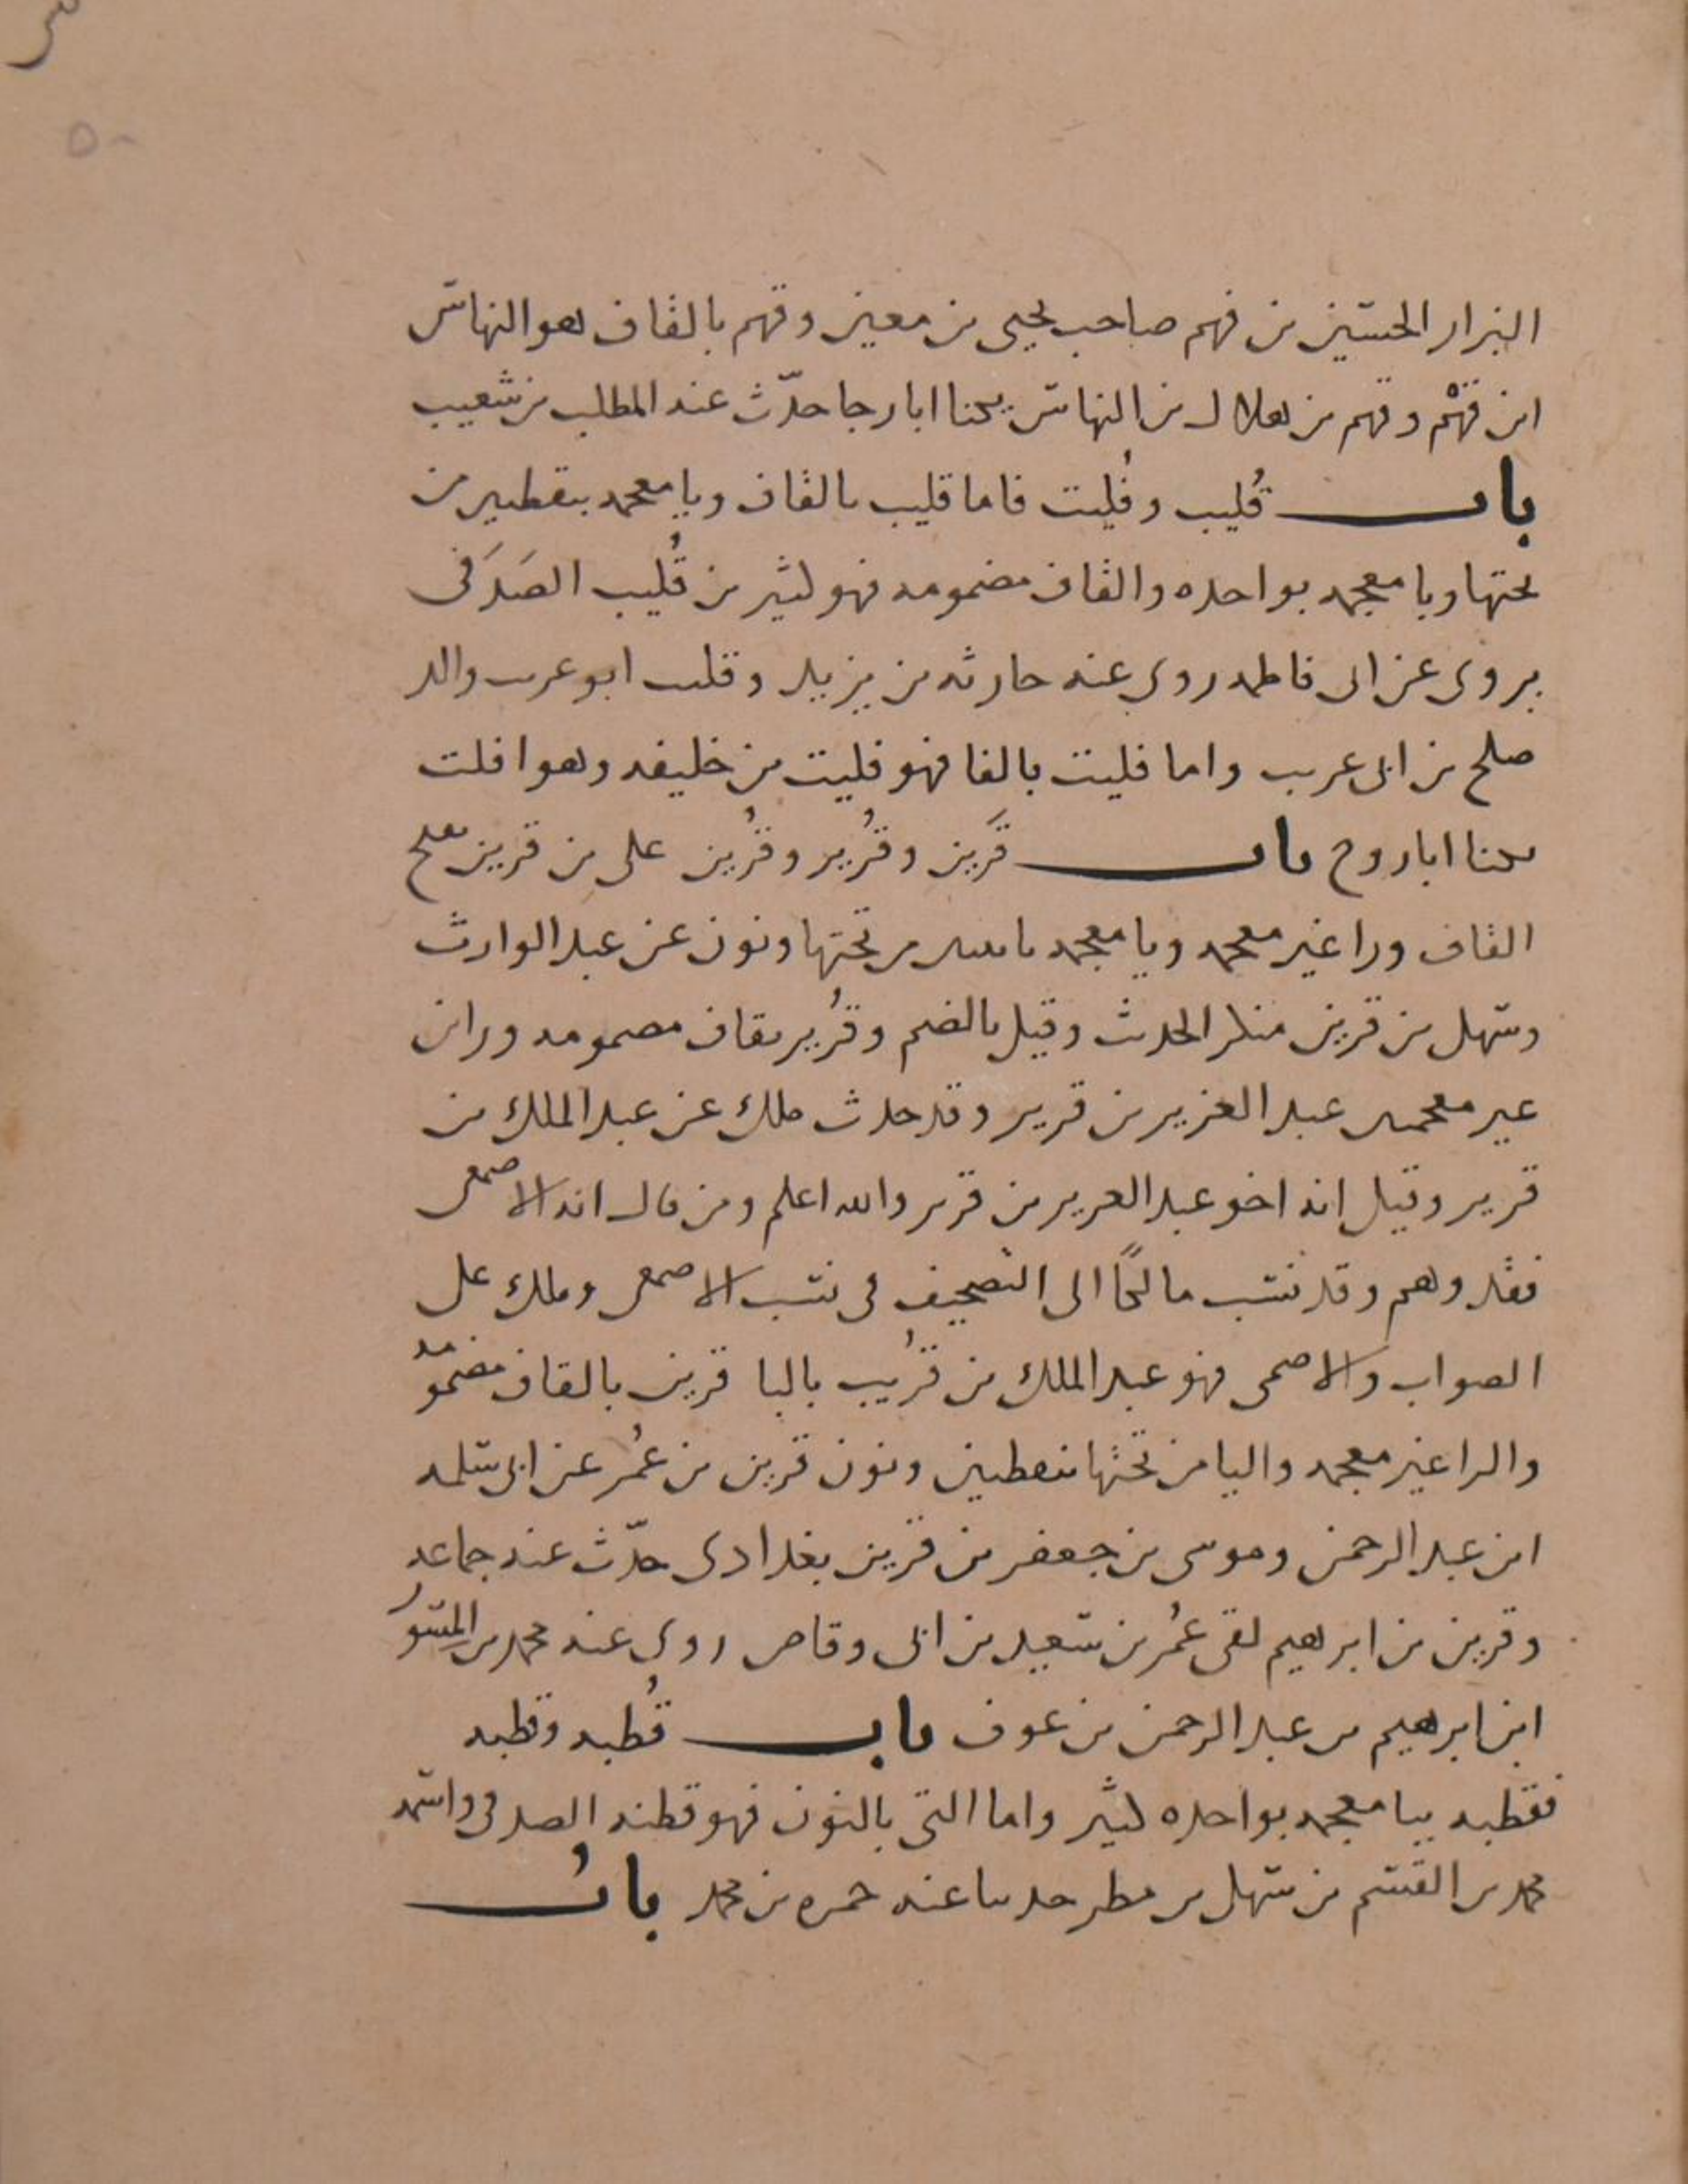 ٥٠
البزار الحسين بن فهم صاحب يحيى بن معين وقهم بالقاف هو النهاس
ابن قهم وقهم بن هلال بن النهاس يكنا ابا رجا حدّث عنه المطلب بن شعيب
باب قُليب وفُليت فاما قليب بالقاف ويا معجمه بنقطتين من
تحتها وبا معجمه بواحده والقاف مضمومه فهو كثير بن قُليب الصَدَفى
يروى عن ابى فاطمه روى عنه حارثه بن يزيد وقليب ابو عريب والد
صلح بن ابى عريب واما فليت بالفا فهو فليت بن خليفه وهو افلت
يكنا ابا روح باب قَرين وقُرير وقُرين على بن قرين بفتح
القاف ورا غير معجمه ويا معجمه باثنتين من تحتها ونون عن عبد الوارث
وسهل بن قرين منكر الحديث وقيل بالضم وقُرير بقاف مضمومه وراين
غير معجمتين عبد العزيز بن قرير وقد حدث ملك عن عبد الملك بن
قرير وقيل انه اخو عبد العزيز بن قرير والله اعلم ومن قال انه الاصمعى
فقد وهم وقد نسب مالكًا الى التصحيف فى نسب الاصمعى وملك على
الصواب والاصمعى فهو عبد الملك بن قُريب بالبا قرين بالقاف مضمومه
والرا غير معجمه واليا من تحتها بنقطتين ونون قرين بن عُمر عن ابى سلمه
ابن عبد الرحمن وموسى بن جعفر بن قرين بغدادى حدّث عنه جماعه
وقرين بن ابرهيم لقى عُمر بن سعيد بن ابى وقاص روى عنه محمد بن المسور
ابن ابرهيم بن عبد الرحمن بن عوف باب قُطبه وقطنه
فقطبه ببا معجمه بواحده كثير واما التى بالنون فهو قطنه الصدفى واسمه
محمد بن القسم بن سهل بن مطر حدثنا عنه حمزه بن محمد باب